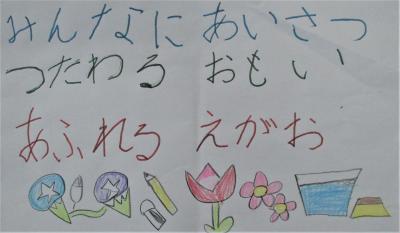 みんなに あいさつ
つたわる おもい
あふれる えがお